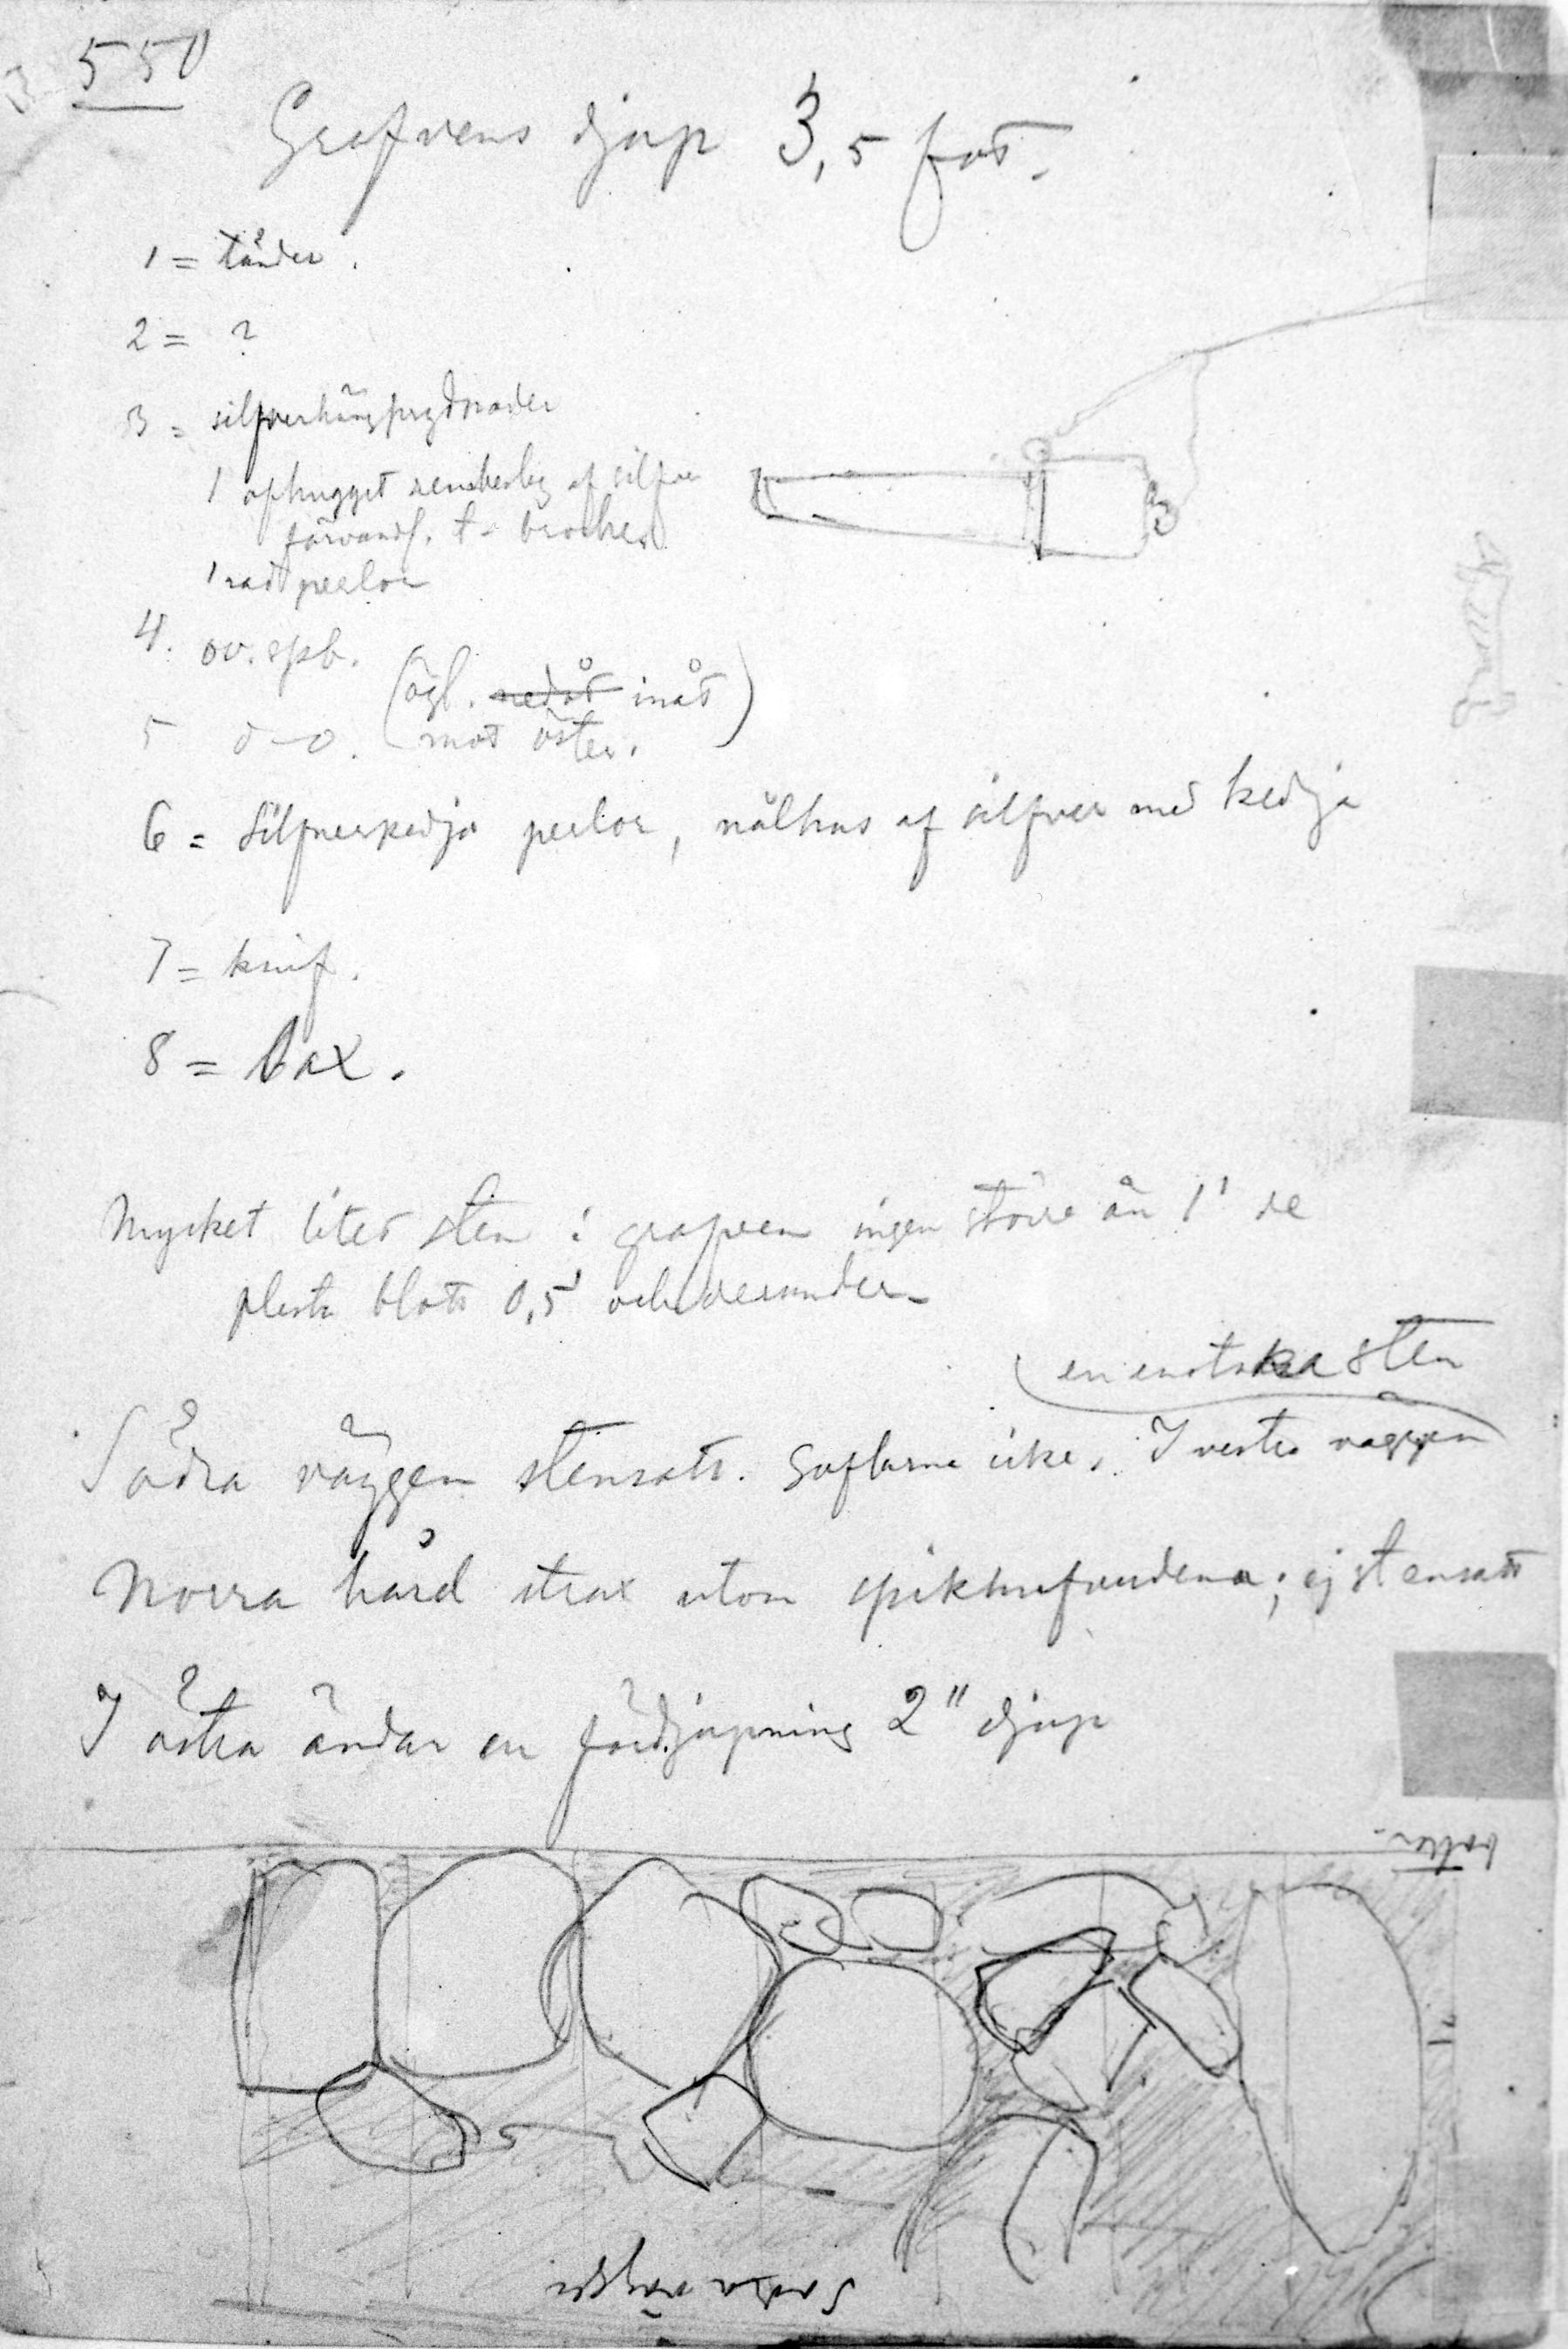 550
Grafvens djup 3,5 fot.
1 = tänder.
2 = ?
3 = silfverhängprydnader
1 afhugget rembeslag af silfver
förvandl. t. broche.
1 rad perlor
4. ov. spb.
(ögl. nedåt inåt)
5 d-o. mot öster.
6 = Silfverkedja perlor, nålhus af silfver med kedja
7 = knif.
8 = sax.
Mycket litet sten i grafven ingen större än 1' de
flesta blott 0,5' och derunder
en enstaka sten
Södra väggen stensatt. Gaflarne icke. I vestra väggen
Norra hård strax utom spikhufvudena; ej stensatt
I östra ändan en fördjupning 2" djup
botten
1'
Södra väggen